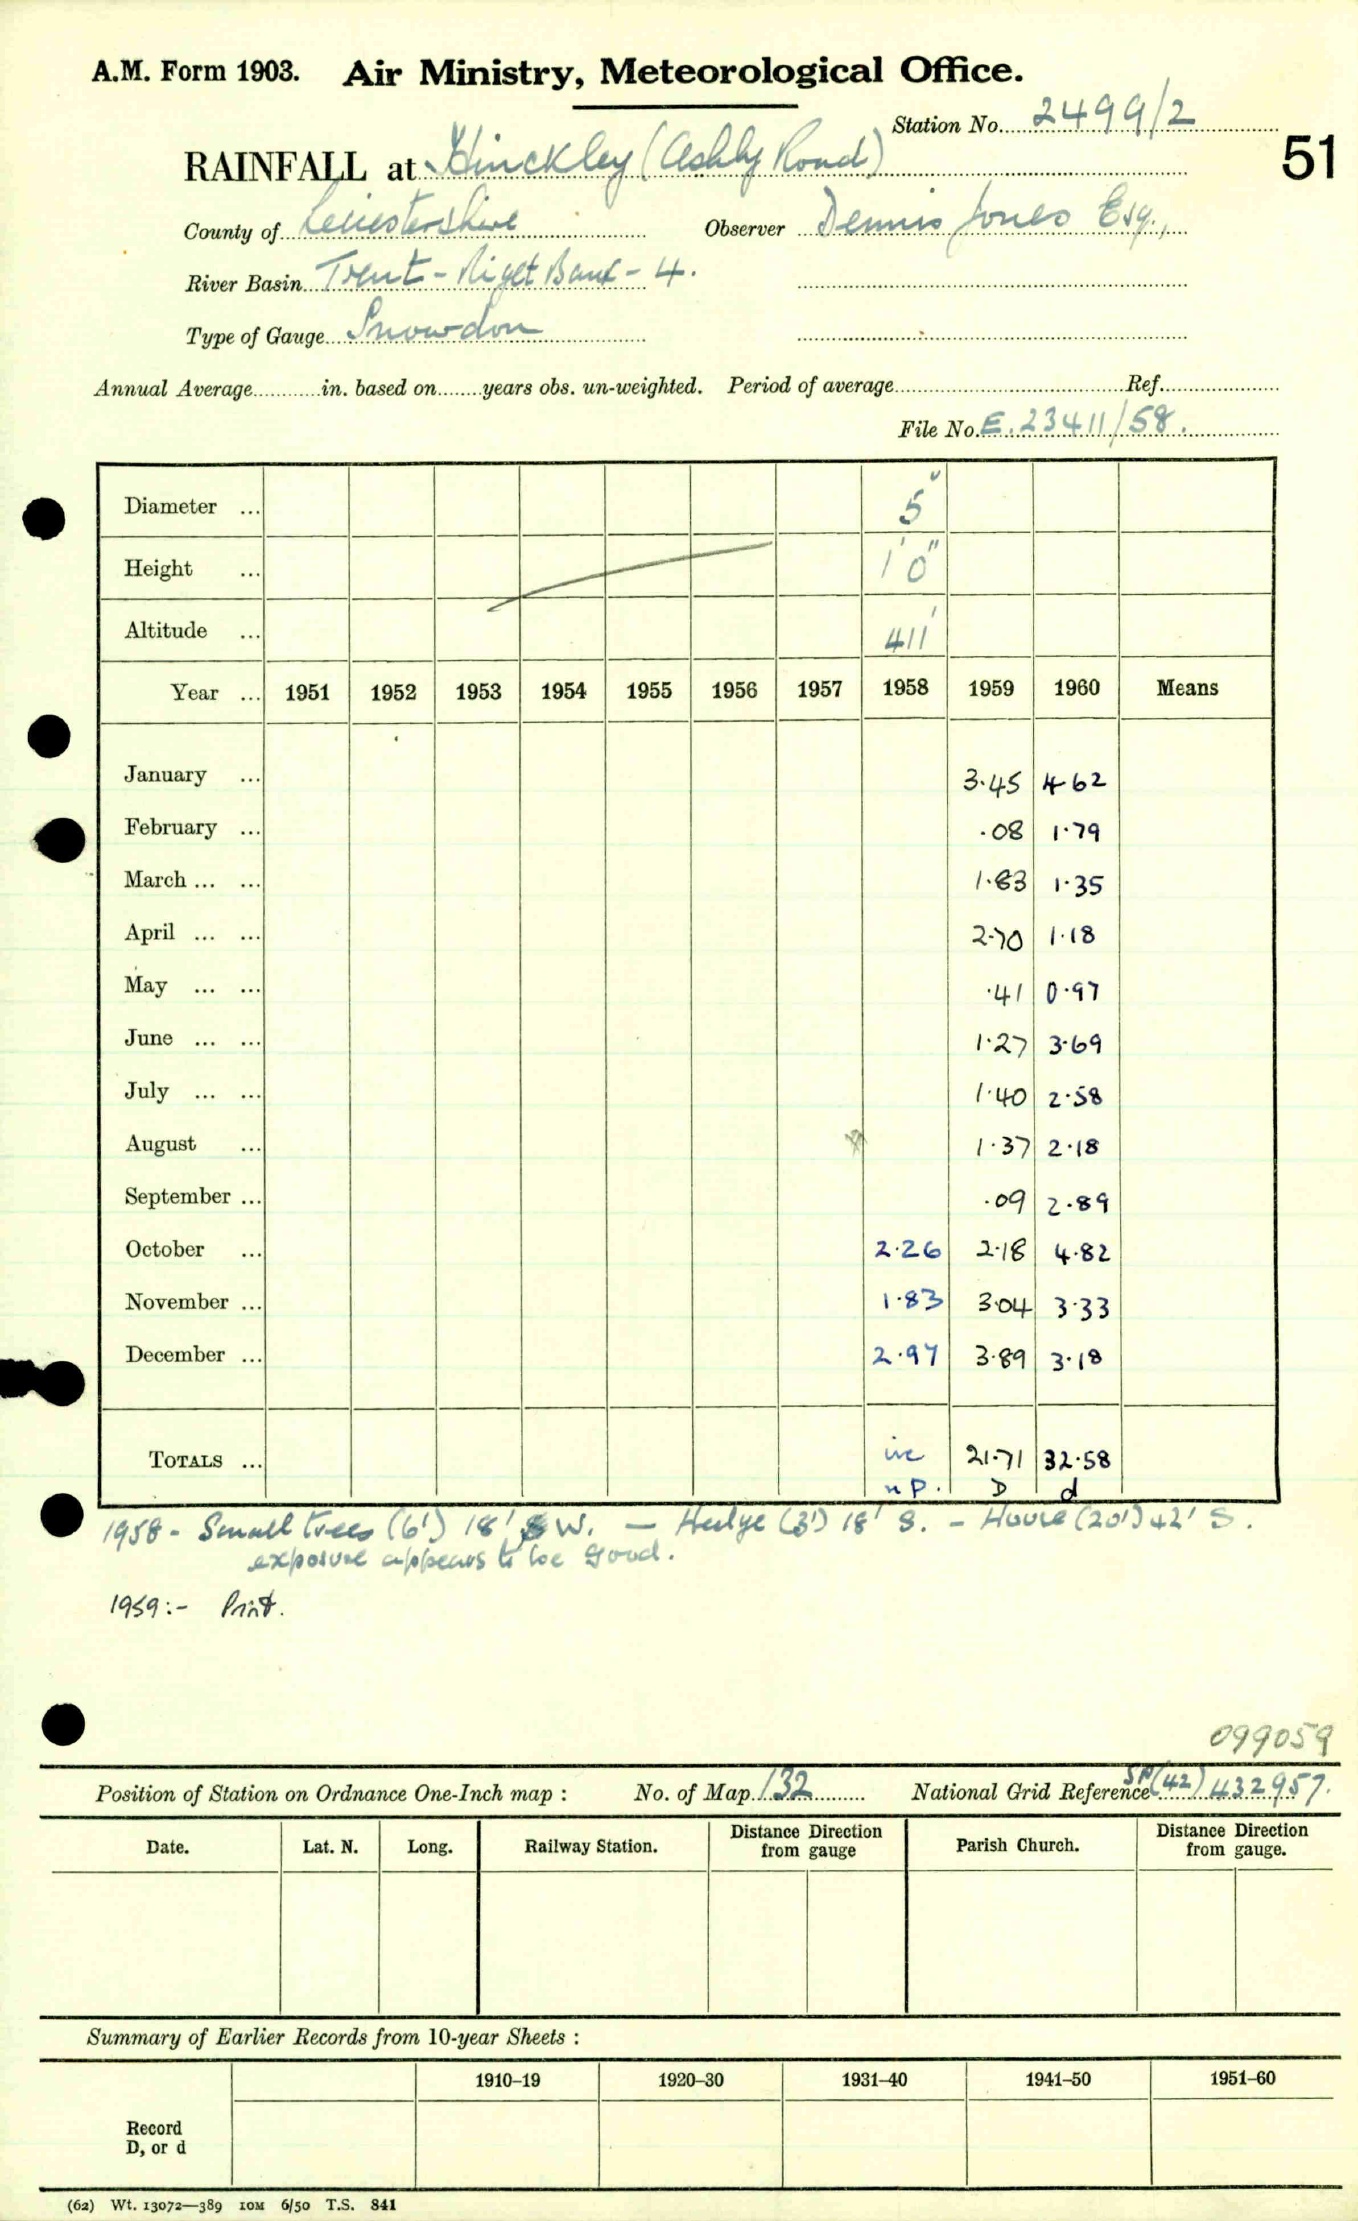 A.M. Form 1903. Air Ministry, Meteorological Office.
Station No. 2499/2
51
RAINFALL at Hinckley (Ashby Road)
County of Leicestershire Observer Dennis Jones Esq.,
River Basin Trent - Right Bank - 4.
Type of Gauge Snowdon
Annual Average............in. based on........years obs. un-weighted. Period of average.................... Ref....................
File No. E.23411/58.
Diameter ... 5"
Height ... 1'0"
Altitude ... 411'
Year ... 1951 1952 1953 1954 1955 1956 1957 1958 1959 1960 Means
January ... 3.45 4.62
February ... .08 1.79
March ... ... 1.83 1.35
April ... ... 2.70 1.18
May ... ... .41 0.97
June ... ... 1.27 3.69
July ... ... 1.40 2.58
August ... 1.37 2.18
September ... .09 2.89
October ... 2.26 2.18 4.82
November ... 1.83 3.04 3.33
December ... 2.97 3.89 3.18
TOTALS ... inc 21.71 32.58
n P. D d
1958 - Small trees (6') 18' SW. — Hedge (3') 18' S. - House (20') 42' S.
exposure appears to be good.
1959:- Print.
099059
Position of Station on Ordnance One-Inch map : No. of Map 132 National Grid Reference SP(42) 432957.
Date. Lat. N. Long. Railway Station. Distance Direction from gauge Parish Church. Distance Direction from gauge.
Summary of Earlier Records from 10-year Sheets :
1910–19 1920–30 1931–40 1941–50 1951–60
Record
D, or d
(62) Wt. 13072—389 10M 6/50 T.S. 841